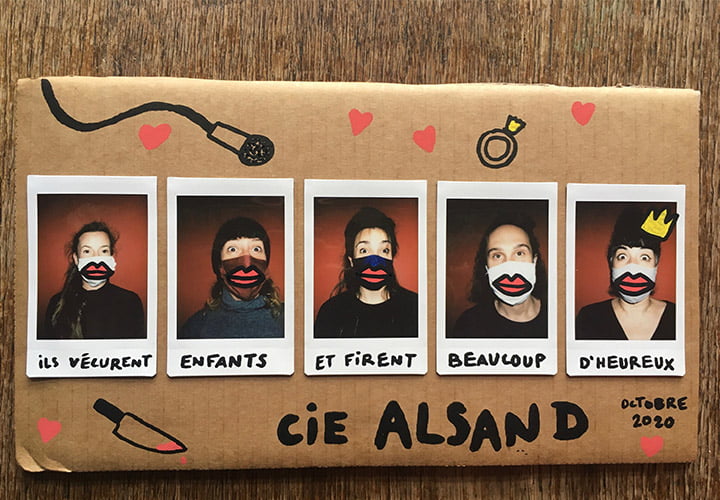 ILS VÉCURENT
ENFANTS
ET FIRENT
BEAUCOUP
D'HEUREUX
CIE ALSAND
OCTOBRE
2020